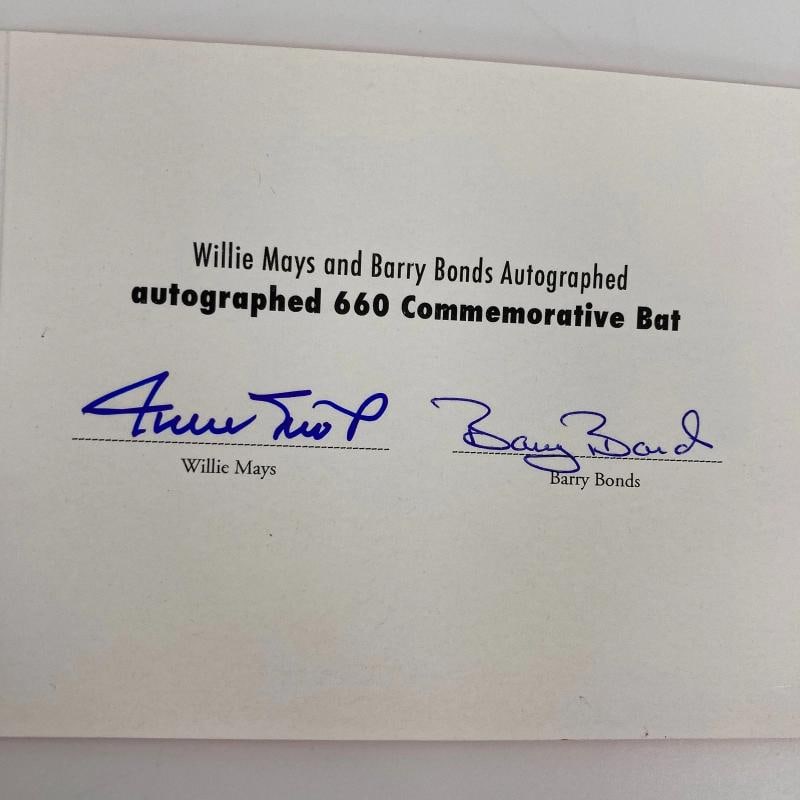 Willie Mays and Barry Bonds Autographed
autographed 660 Commemorative Bat
Willie Mays
Barry Bonds